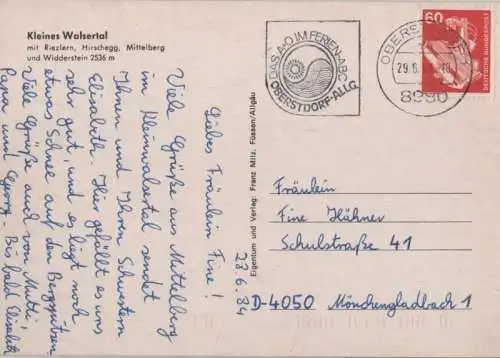 Kleines Walsertal
mit Riezlern, Hirschegg, Mittelberg
und Widderstein 2536 m
DAS A+O IM FERIEN-ABC
OBERSTDORF-ALLG.
OBERSTDORF
29.6.
8980
60
DEUTSCHE BUNDESPOST
28.6.84
Liebes Fräulein Fine!
Viele Grüße aus Mittelberg
im Kleinwalsertal sendet
Ihnen und Ihren Schwestern
Elisabeth. Hier gefällt es uns
sehr gut, und es liegt noch
etwas Schnee auf den Bergspitzen.
Viele Grüße auch von Mutti,
Papa und Georg. Bis bald Elisabeth
Eigentum und Verlag: Franz Milz, Füssen/Allgäu
Fräulein
Fine Hühner
Schulstraße 41
D-4050 Mönchengladbach 1